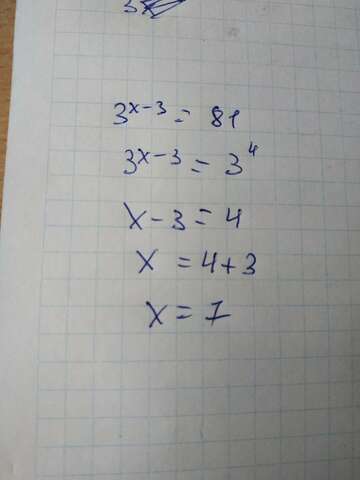 3^{x-3} = 81
3^{x-3} = 3^4
x-3 = 4
x = 4+3
x = 7